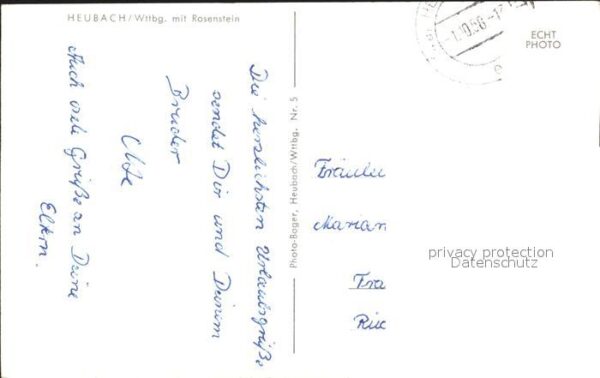 HEUBACH/Wttbg. mit Rosenstein
Die herzlichsten Urlaubsgrüße
sendet Dir und Deinem
Bruder
Auch viele Grüße an Deine
Eltern.
Photo-Bager, Heubach/Wttbg. Nr. 5
-1.10.56.-1
ECHT
PHOTO
Fräulei
Marian
Fra
privacy protection
Datenschutz